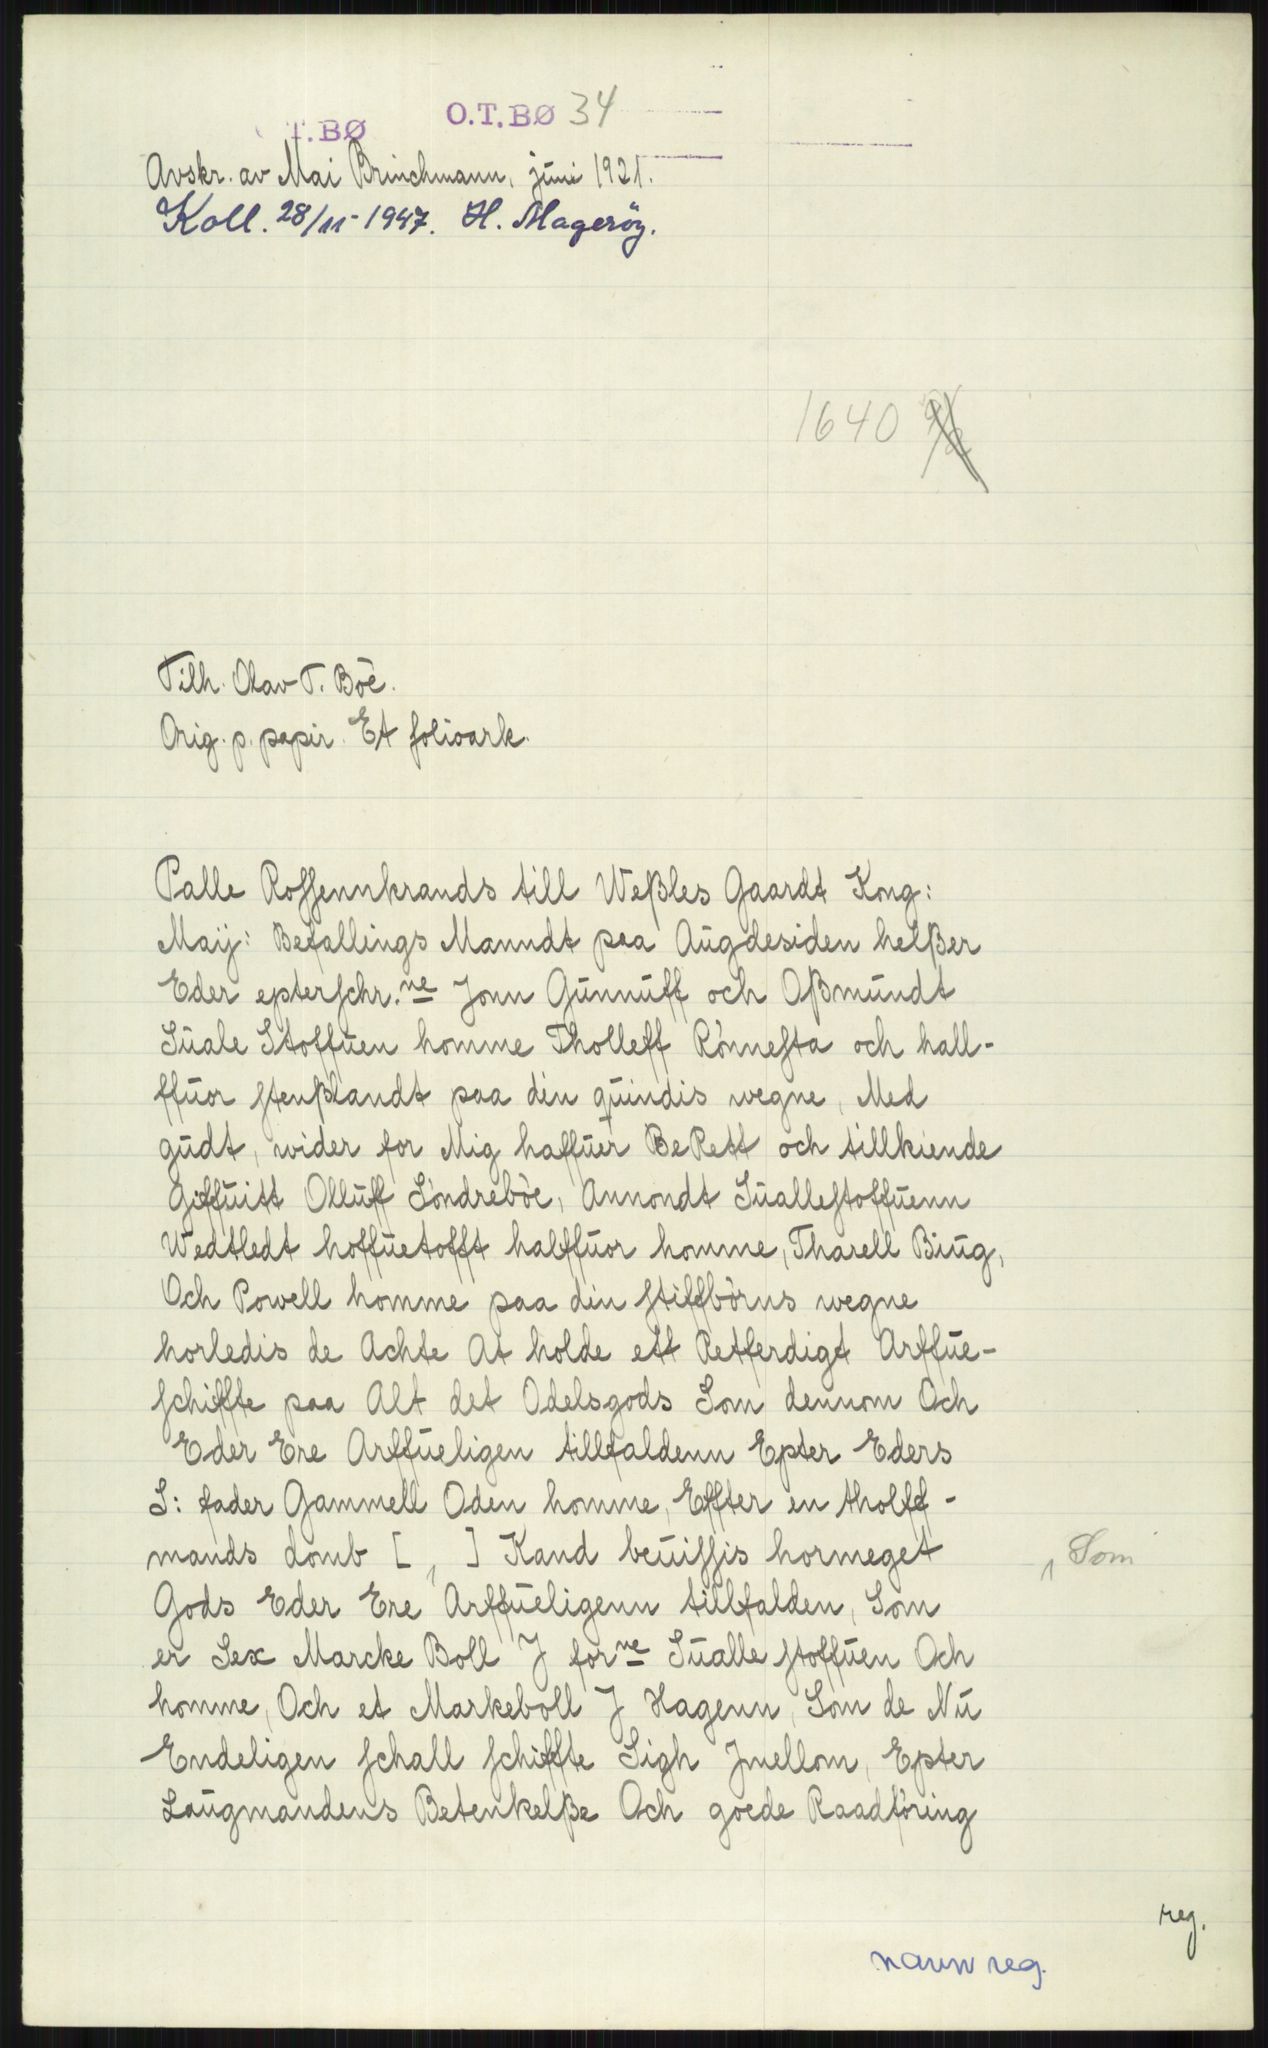 O.T.BØ 34
T.BØ
Avskr. av Mai Brinchmann, juni 1921.
Koll. 28/11-1947. H. Mageröy.
1640
Tilh. Olav T. Böe.
Orig. p. papir. Et folioark.
Palle Rossennkrands till Weßles Gaardt Kong:
Maÿ: Befallings Manndt paa Augdesiden helßer
Eder epterschr.ne Jonn Gunnuff och Oßmundt
Suale Stoffuen homme Tholleff Rönnesta och hall-
ffuor stenßlandt paa din quindis wegne, Med
gudt, wider for Mig haffuer BeRett och tillkiende
Giffuitt Olluff Söndreböe, Annondt Suallestoffuenn
Wedtledt hoffuetofft halffuor homme, Tharell Biug,
Och Powell homme paa din stiffbörns wegne
horledis de Achte At holde ett Retferdigt Arffue-
schiffte paa Alt det Odelsgods Som dennom Och
Eder Ere Arffueligen tillfaldenn Epter Eders
S: fader Gammell Oden homme, Effter en tholff-
mands domb [ , ] Kand beuissis hormeget , Som
Gods Eder Ere Arffueligenn tillfalden, Som
er Sex Marcke Boll J forne Sualle stoffuen Och
homme, Och et Markeboll J Hagenn, Som de Nu
Endeligen schall schiffte Sigh Jmellom, Epter
Laugmandens Betenkelße Och goede Raadföring
reg.
navn reg.